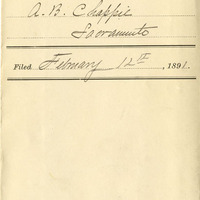 A. B. Chappie
Sacramento
Filed February 12th, 1891.